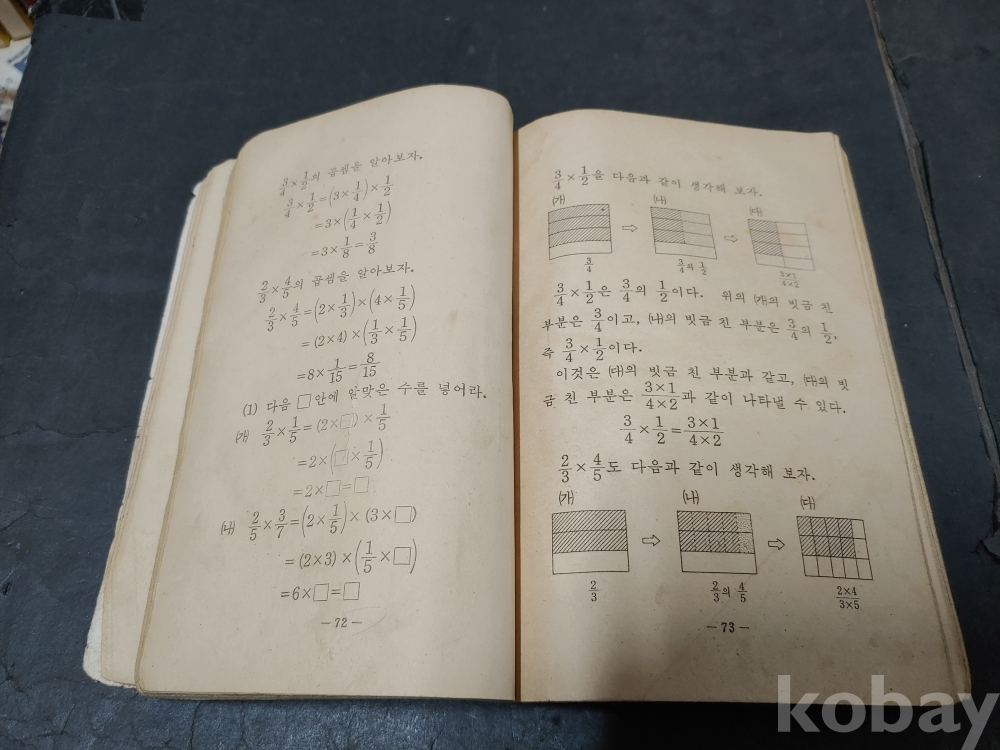 3/4 × 1/2의 곱셈을 알아보자.
3/4 × 1/2 = (3 × 1/4) × 1/2
= 3 × (1/4 × 1/2)
= 3 × 1/8 = 3/8
2/3 × 4/5의 곱셈을 알아보자.
2/3 × 4/5 = (2 × 1/3) × (4 × 1/5)
= (2×4) × (1/3 × 1/5)
= 8 × 1/15 = 8/15
(1) 다음 □안에 알맞은 수를 넣어라.
(가) 2/3 × 1/5 = (2×□) × 1/5
= 2 × (□ × 1/5)
= 2×□=□
(나) 2/5 × 3/7 = (2 × 1/5) × (3×□)
= (2×3) × (1/5 × □)
= 6×□=□
－72－
3/4 × 1/2을 다음과 같이 생각해 보자.
(가) (나) (다)
⇨ ⇨
3/4 3/4의 1/2 3×1/4×2
3/4 × 1/2은 3/4의 1/2이다. 위의 (가)의 빗금 친
부분은 3/4이고, (나)의 빗금 친 부분은 3/4의 1/2,
즉 3/4 × 1/2이다.
이것은 (다)의 빗금 친 부분과 같고, (다)의 빗
금 친 부분은 3×1/4×2과 같이 나타낼 수 있다.
3/4 × 1/2 = 3×1/4×2
2/3 × 4/5도 다음과 같이 생각해 보자.
(가) (나) (다)
⇨ ⇨
2/3 2/3의 4/5 2×4/3×5
－73－
kobay